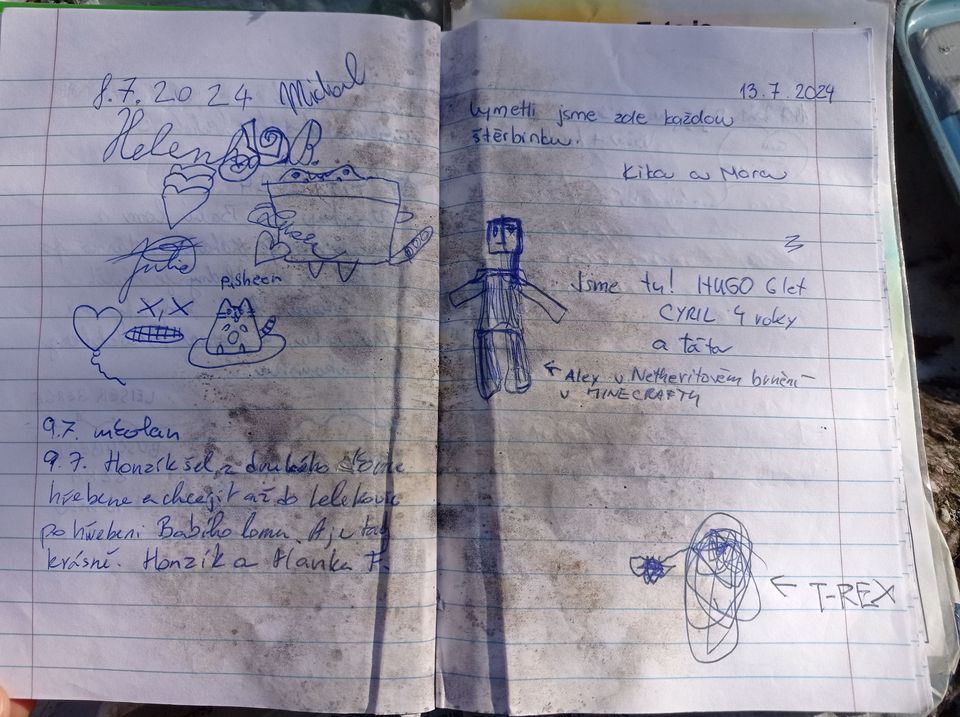 8.7.2024 Michal
Helen
Julie
Pusheen
9.7. mkolan
9.7. Honzík šel z druhého
hřebene a chce jít až do Lelekovic
po hřebeni Babího lomu. A je tay
krásně. Honzík a Hanka F.
13.7.2024
Vymetli jsme zde každou
štěrbinku.
Kika a Mara
Jsme tu! HUGO 6 let
CYRIL 4 roky
a táta
← Alex v Netheritovém brnění
v MINECRAFTU
← T-REX